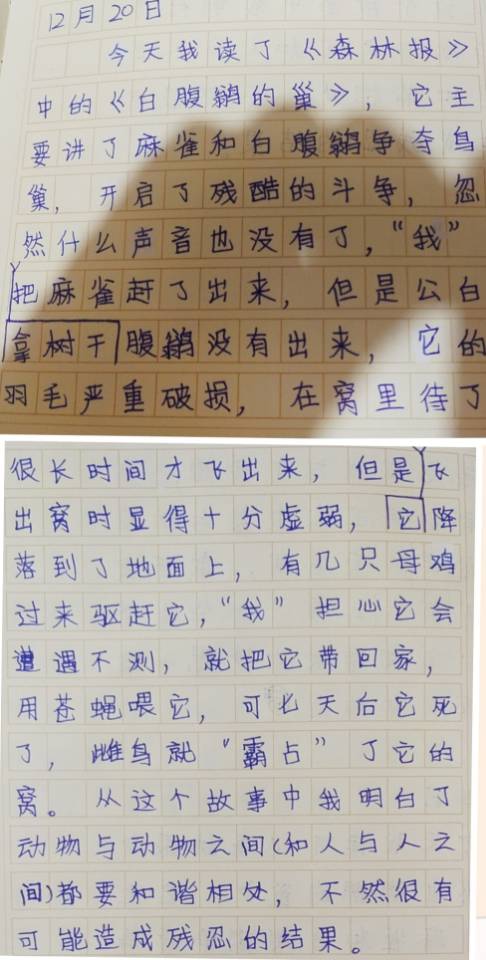 12月20日
今天我读了《森林报》
中的《白腹鹟的巢》，它主
要讲了麻雀和白腹鹟争夺鸟
巢，开启了残酷的斗争，忽
然什么声音也没有了，“我”
把麻雀赶了出来，但是公白
拿树干腹鹟没有出来，它的
羽毛严重破损，在窝里待了
很长时间才飞出来，但是飞
出窝时显得十分虚弱，它降
落到了地面上，有几只母鸡
过来驱赶它，“我”担心它会
遭遇不测，就把它带回家，
用苍蝇喂它，可七天后它死
了，雌鸟就“霸占”了它的
窝。从这个故事中我明白了
动物与动物之间(和人与人之
间)都要和谐相处，不然很有
可能造成残忍的结果。